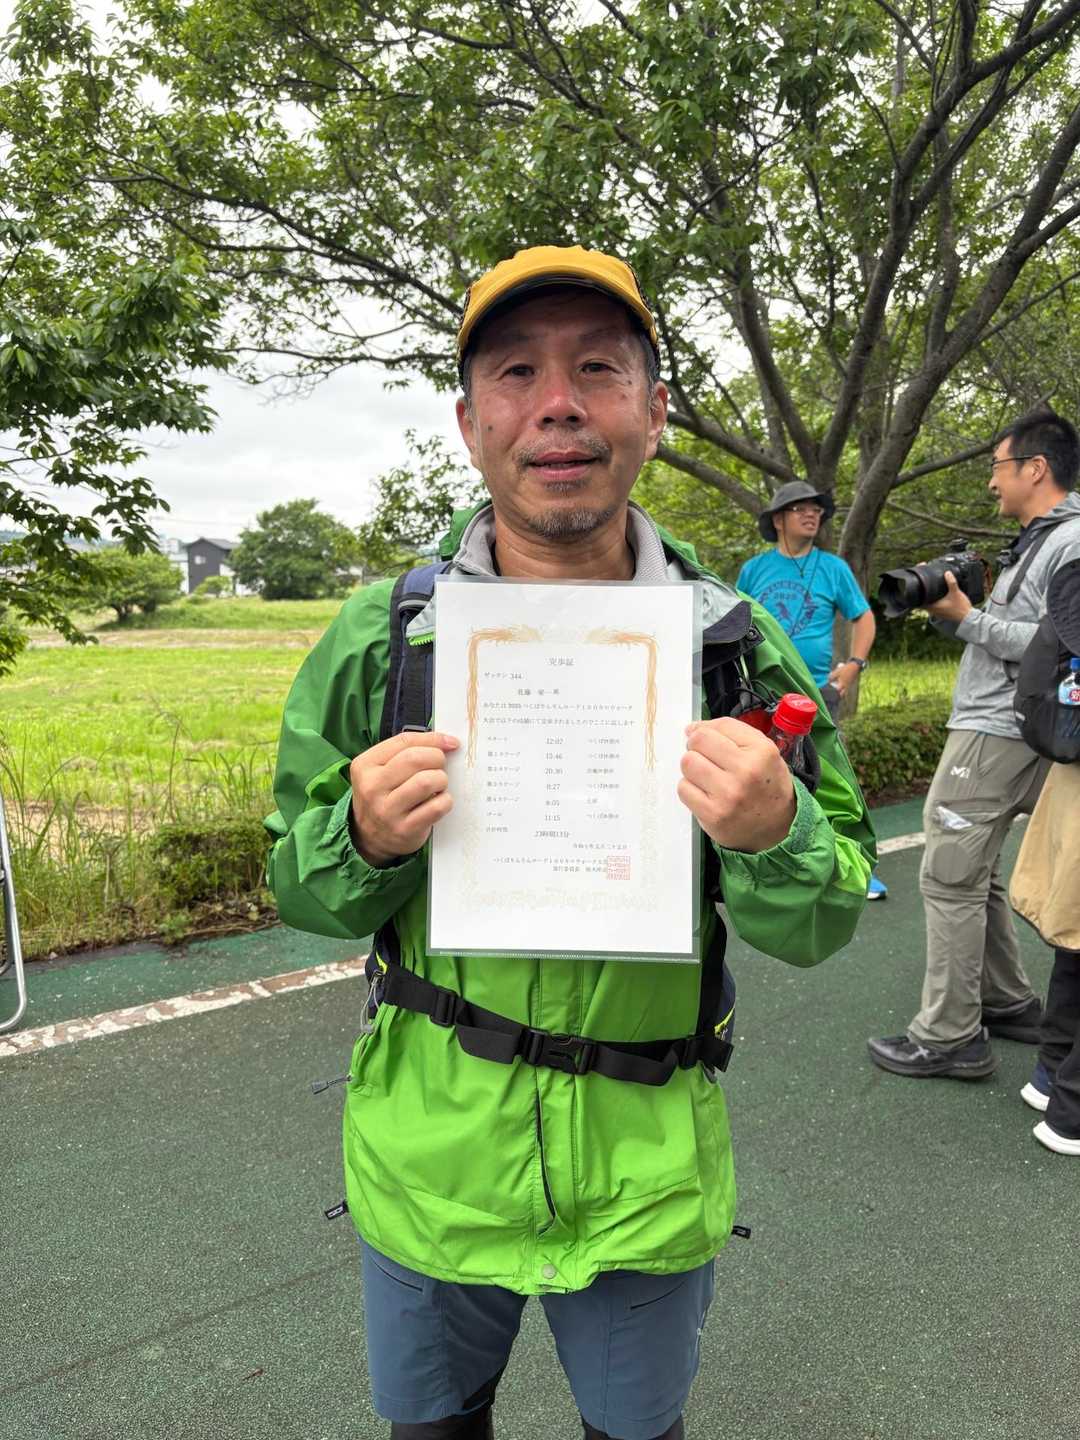 完歩証
ゼッケン 344
佐藤
あなたは 2025 つくばりんりんロード100キロウォーク
大会で以下の成績にて完歩されましたのでここに証します
スタート 12:02 つくば休憩所
第1ステージ 15:46 つくば休憩所
第2ステージ 20:30 岩瀬休憩所
第3ステージ 0:27 つくば休憩所
第4ステージ 6:05 土浦
ゴール 11:15 つくば休憩所
合計時間 23時間13分
令和七年五月二十五日
つくばりんりんロード100キロウォーク大会
実行委員長
2025